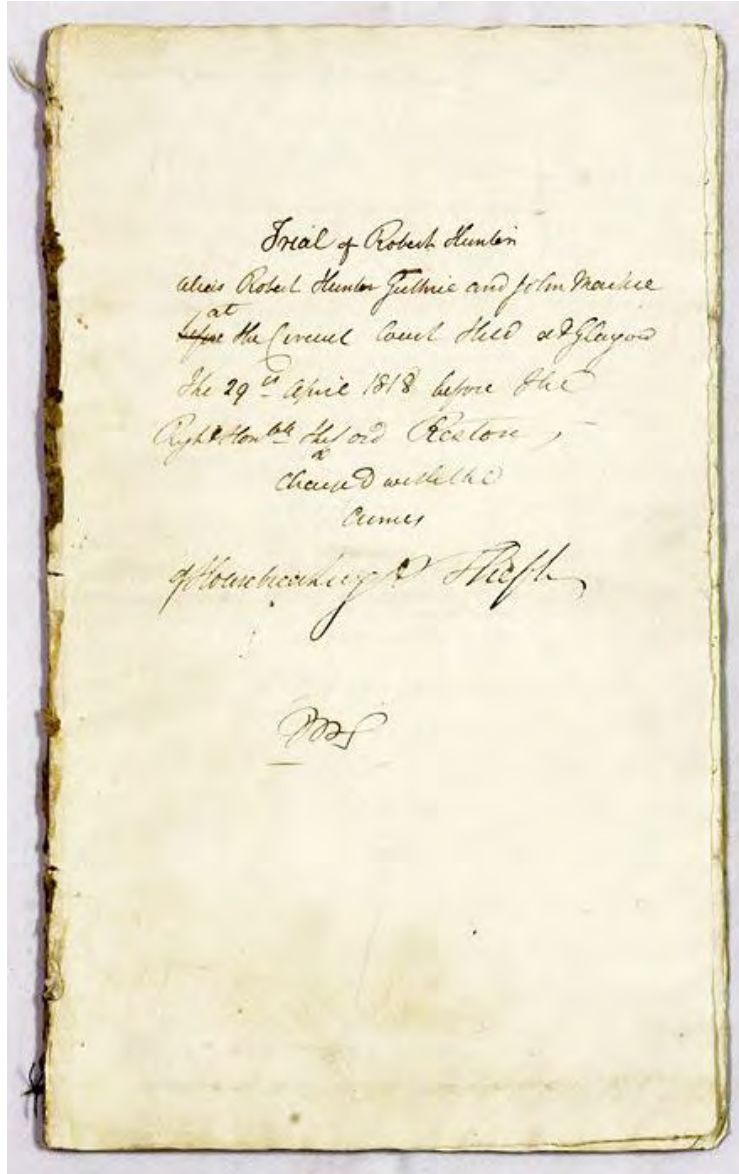 Trial of Robert Hunter
alias Robert Hunter Guthrie and John Mackie
at
before the Circuit Court Held at Glasgow
the 29th April 1818 before the
Right Honble the Lord Reston
charged with the
Crimes
of Housebreaking & Theft